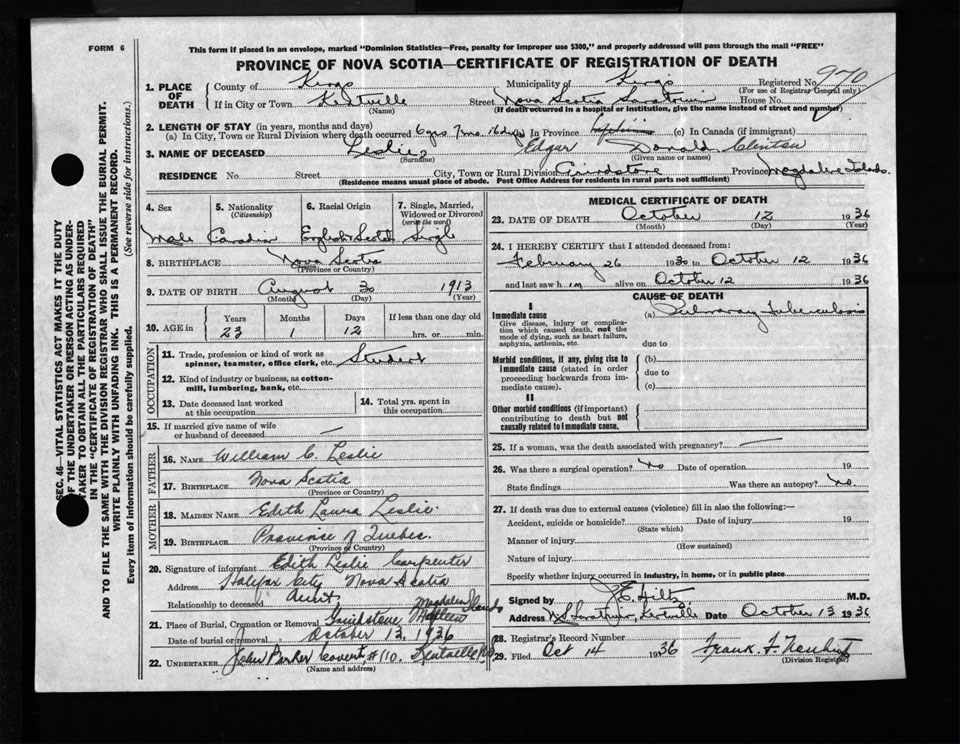 FORM 6
This form if placed in an envelope, marked "Dominion Statistics—Free, penalty for improper use $300," and properly addressed will pass through the mail "FREE"
PROVINCE OF NOVA SCOTIA—CERTIFICATE OF REGISTRATION OF DEATH
1. PLACE OF DEATH
County of Kings Municipality of Kings Registered No. 970
(For use of Registrar General only)
If in City or Town Kentville Street Nova Scotia House No.
(Name) (If death occurred in a hospital or institution, give the name instead of street and number)
2. LENGTH OF STAY (in years, months and days)
(a) In City, Town or Rural Division where death occurred 6 yrs 7 mo 16 dys In Province (c) In Canada (if immigrant)
3. NAME OF DECEASED Leslie Edgar Donald
(Surname) (Given name or names)
RESIDENCE No. Street City, Town or Rural Division Grindstone Province Magdalen Islands.
(Residence means usual place of abode. Post Office Address for residents in rural parts not sufficient)
4. Sex
Male
5. Nationality
(Citizenship)
Canadian
6. Racial Origin
English Scotch
7. Single, Married, Widowed or Divorced
(write the word)
Single
8. BIRTHPLACE Nova Scotia
(Province or Country)
9. DATE OF BIRTH August 30 1913
(Month) (Day) (Year)
10. AGE in
Years Months Days If less than one day old
23 1 12 hrs. or min.
OCCUPATION
11. Trade, profession or kind of work as spinner, teamster, office clerk, etc. Student
12. Kind of industry or business, as cotton-mill, lumbering, bank, etc.
13. Date deceased last worked at this occupation
14. Total yrs. spent in this occupation
15. If married give name of wife or husband of deceased
FATHER
16. NAME William C. Leslie
17. BIRTHPLACE Nova Scotia
(Province or Country)
MOTHER
18. MAIDEN NAME Edith Laura Leslie.
19. BIRTHPLACE Province of Quebec.
(Province or Country)
20. Signature of informant Edith Leslie Carpenter
Address Halifax City Nova Scotia
Relationship to deceased Aunt
21. Place of Burial, Cremation or Removal Grindstone Magdalen Islands
Date of burial or removal October 13, 1936
22. UNDERTAKER John Parker Covert, #110. Kentville NS
(Name and address)
MEDICAL CERTIFICATE OF DEATH
23. DATE OF DEATH October 12 1936
(Month) (Day) (Year)
24. I HEREBY CERTIFY that I attended deceased from:
February 26 1930 to October 12 1936
and last saw him alive on October 12 1936
CAUSE OF DEATH
I
Immediate cause (a) Pulmonary Tuberculosis
Give disease, injury or complication which caused death, not the mode of dying, such as heart failure, asphyxia, asthenia, etc.
due to
Morbid conditions, if any, giving rise to immediate cause (stated in order proceeding backwards from immediate cause).
(b)
due to
(c)
II
Other morbid conditions (if important) contributing to death but not causally related to immediate cause.
25. If a woman, was the death associated with pregnancy?
26. Was there a surgical operation? No Date of operation 19
State findings Was there an autopsy? No.
27. If death was due to external causes (violence) fill in also the following:—
Accident, suicide or homicide? Date of injury 19
(State which)
Manner of injury
(How sustained)
Nature of injury
Specify whether injury occurred in industry, in home, or in public place
Signed by J. E. Hiltz M.D.
Address Kentville Date October 13 1936
28. Registrar's Record Number
29. Filed Oct 14 1936 Frank F.
(Division Registrar)
SEC. 46—VITAL STATISTICS ACT MAKES IT THE DUTY
OF THE UNDERTAKER OR PERSON ACTING AS UNDER-
TAKER TO OBTAIN ALL THE PARTICULARS REQUIRED
IN THE "CERTIFICATE OF REGISTRATION OF DEATH"
AND TO FILE THE SAME WITH THE DIVISION REGISTRAR WHO SHALL ISSUE THE BURIAL PERMIT.
WRITE PLAINLY WITH UNFADING INK. THIS IS A PERMANENT RECORD.
Every item of information should be carefully supplied. (See reverse side for instructions.)